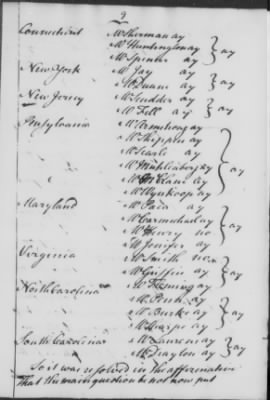 9
Connecticut Mr Sherman ay
Mr Huntington ay } ay
Mr Spencer ay
New York Mr Jay ay
Mr Duane ay } ay
New Jersey Mr Scudder ay
Mr Fell ay } ay
Pensylvania Mr Armstrong ay
Mr Shippen ay
Mr Searle ay
Mr Muhlenberg ay } ay
Mr McLene ay
Mr Wynkoop ay
Maryland Mr Paca ay
Mr Carmichael ay
Mr Henry no } ay
Mr Jenifer ay
Virginia Mr Smith no
Mr Griffin ay } ay
Mr Fleming ay
North Carolina Mr Penn ay
Mr Burke ay } ay
Mr Sharpe ay
South Carolina Mr Laurens ay
Mr Drayton ay } ay
So it was resolved in the affirmative
That the main question be not now put